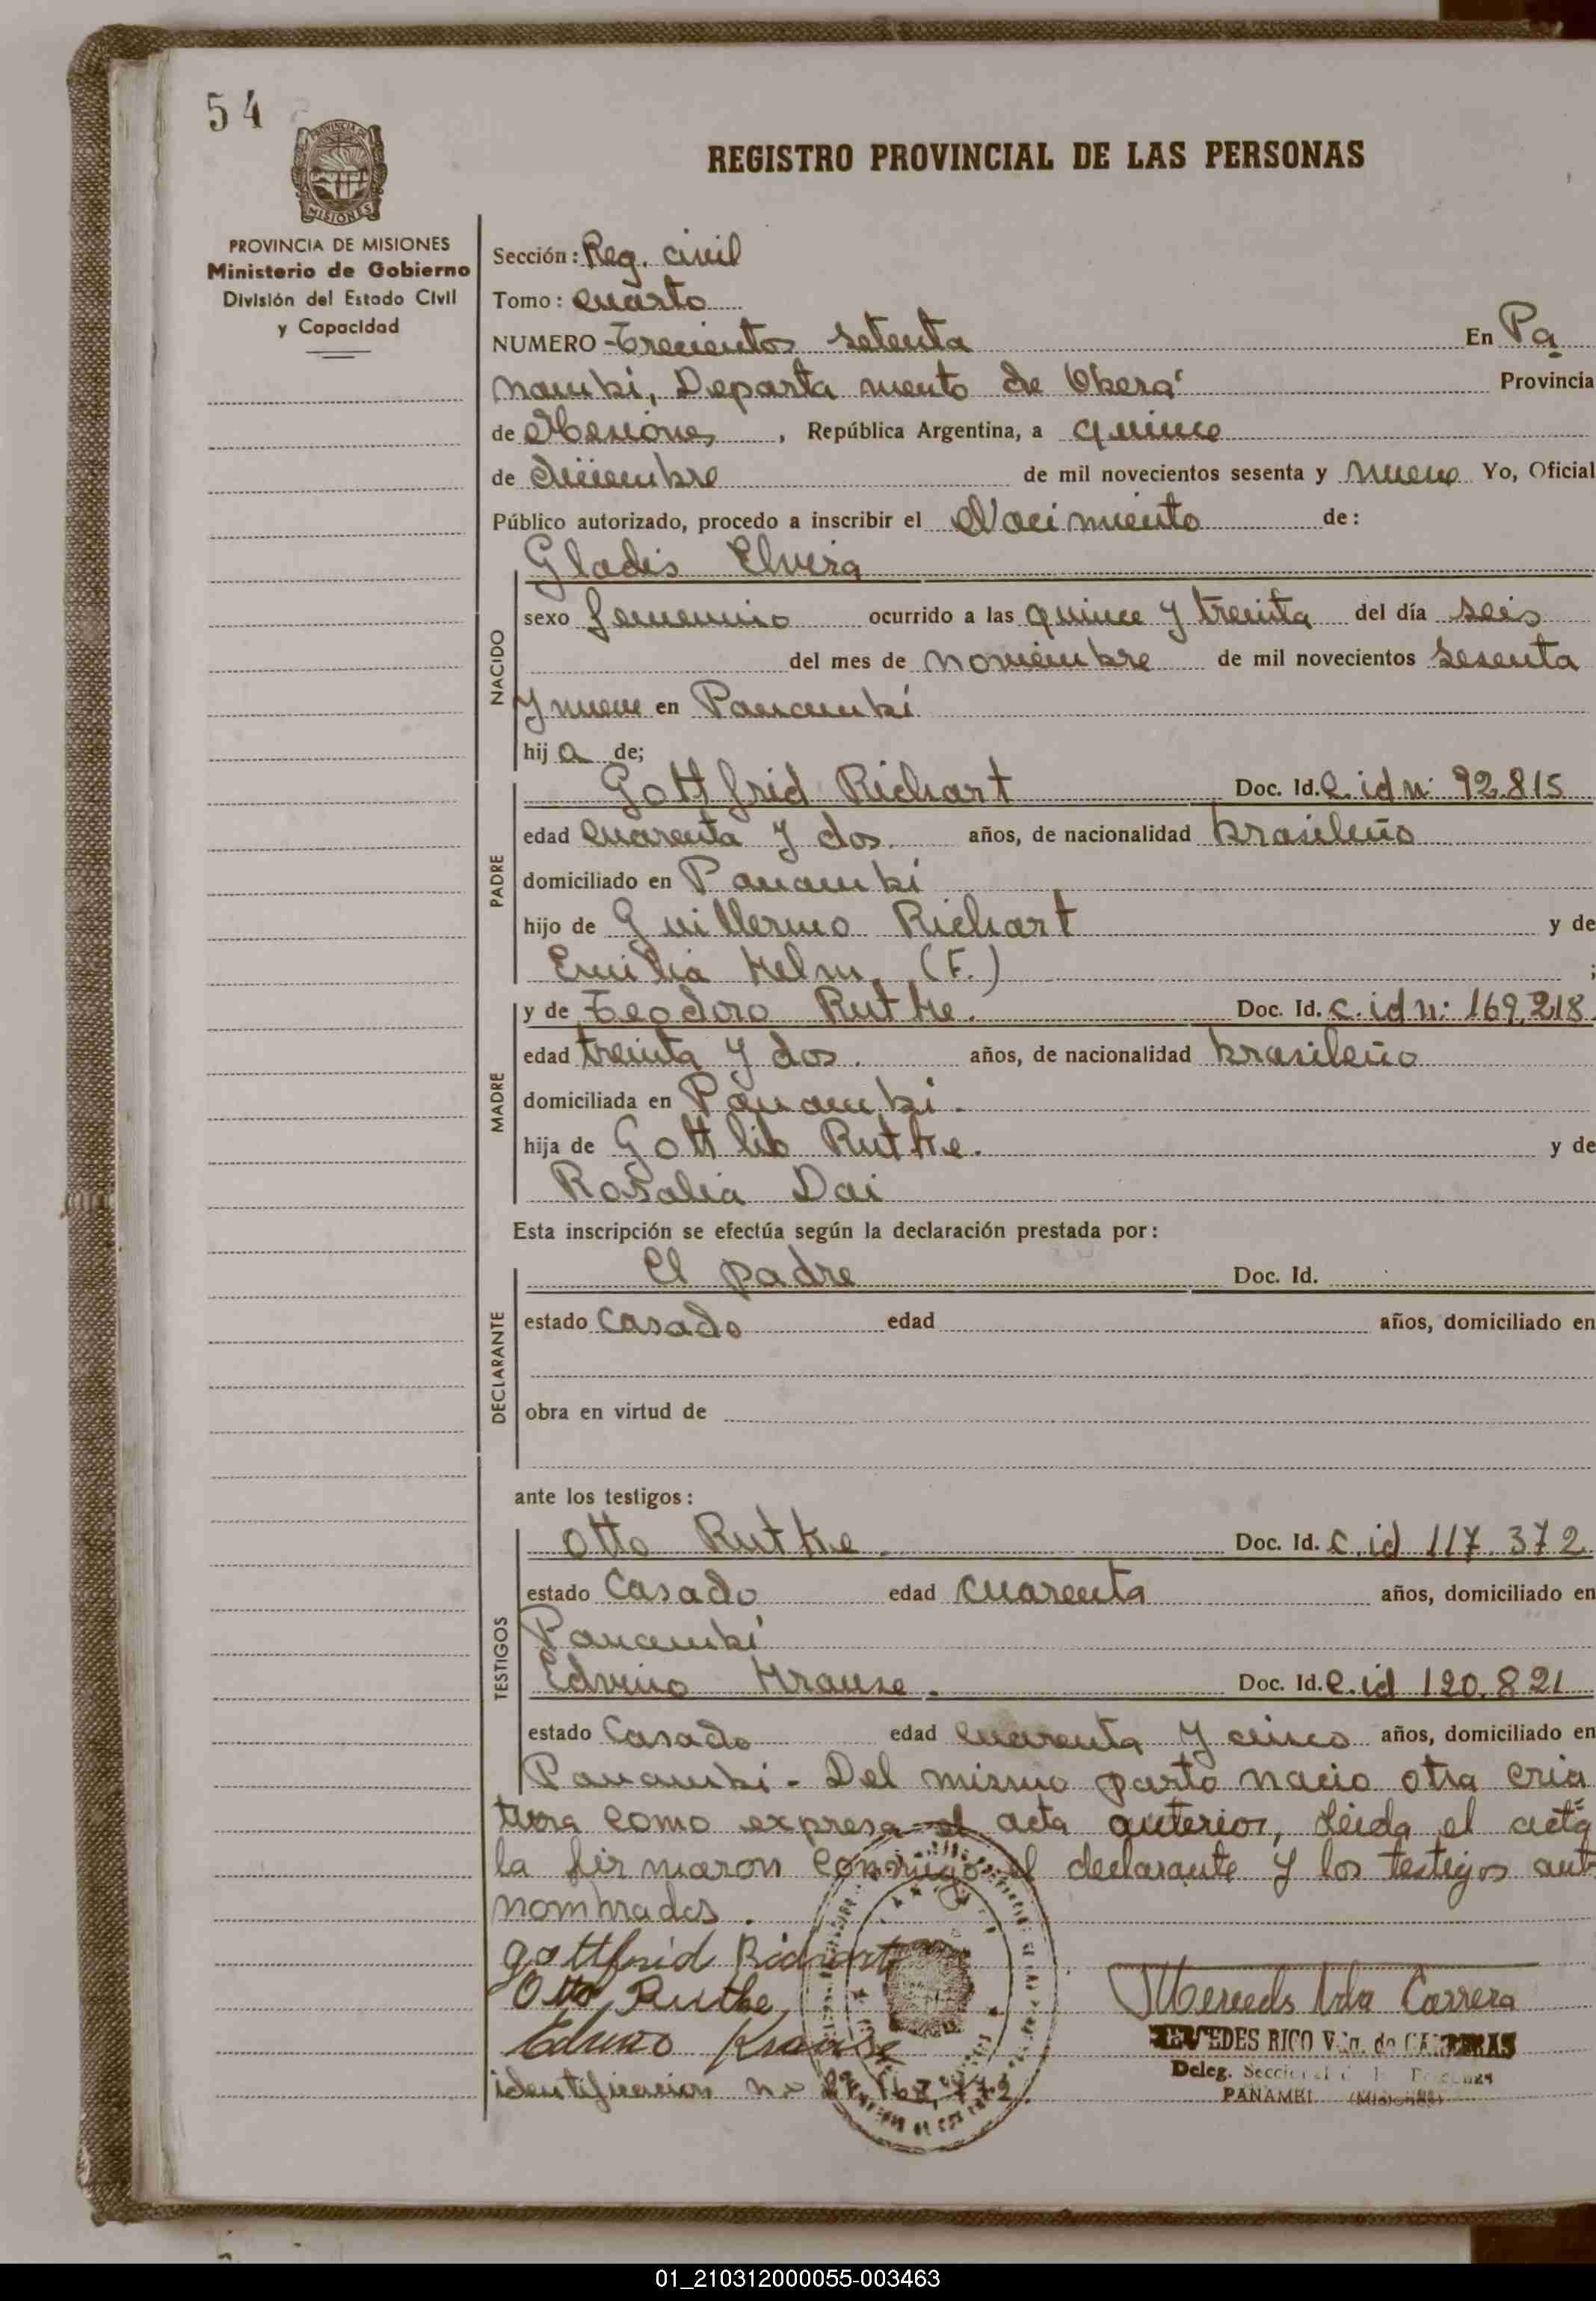 54
PROVINCIA DE MISIONES
MISIONES
PROVINCIA DE MISIONES
Ministerio de Gobierno
División del Estado Civil
y Capacidad
REGISTRO PROVINCIAL DE LAS PERSONAS
Sección: Reg. civil
Tomo: cuarto
NUMERO - Trecientos setenta En Pa
nambi, Departamento de Oberá Provincia
de Misiones, República Argentina, a quince
de diciembre de mil novecientos sesenta y nueve Yo, Oficial
Público autorizado, procedo a inscribir el Nacimiento de:
Gladis Elvira
NACIDO
sexo femenino ocurrido a las quince y treinta del día seis
del mes de noviembre de mil novecientos sesenta
y nueve en Panambí
hij a de;
PADRE
Gottfrid Richart Doc. Id. C. id n: 92.815
edad cuarenta y dos años, de nacionalidad brasileño
domiciliado en Panambí
hijo de Guillermo Richart y de
Emilia Helm (F.) ;
MADRE
y de Teodoro Rutke. Doc. Id. C. id n: 169.218.
edad treinta y dos. años, de nacionalidad brasileño
domiciliada en Panambi.
hija de Gottlib Rutke. y de
Rosalia Dai
Esta inscripción se efectúa según la declaración prestada por:
DECLARANTE
El padre Doc. Id.
estado Casado edad años, domiciliado en
obra en virtud de
ante los testigos:
TESTIGOS
Otto Rutke. Doc. Id. C. id 117.372
estado Casado edad cuarenta años, domiciliado en
Panambí
Edvino Krause. Doc. Id. C. id 120.821
estado Casado edad cuarenta y cinco años, domiciliado en
Panambi - Del mismo parto nacio otra cria
tura como expresa el acta anterior, Leida el acta
la firmaron conmigo el declarante y los testigos ant
nombrados.
Gottfrid Richart
Otto Rutke
Edvino Krause
Mercedes Carrera
EDES RICO Vda. de CARRERAS
Deleg. Seccional
PANAMBI (Misiones)
identificacion no
01_210312000055-003463